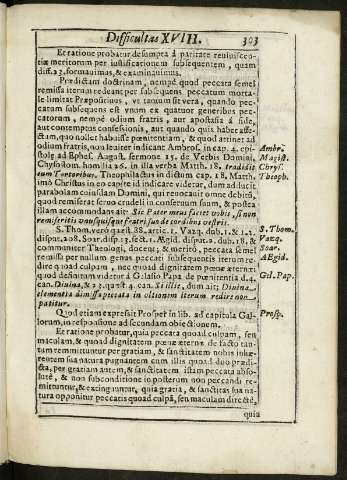 Difficultas XVIII. 303
Et ratione probatur desumpta à paritate reuiuiscen-
tiæ meritorum per iustificationem subsequentem, quam
diff. 23. formauimus, & examinauimus.
Prædictam doctrinam, nempè quod peccata semel
remissa iterum redeant per subsequens peccatum morta-
le limitat Præpositiuus, vt tantum sit vera, quando pec-
catum subsequens est vnum ex quatuor generibus pec-
catorum, nempè odium fratris, aut apostasia à fide,
aut contemptus confessionis, aut quando quis habet affe-
ctum, quo nollet habuisse pœnitentiam, & quod attinet ad
odium fratris, non leuiter indicant Ambros. in cap. 4. epi-
stolę ad Ephes. August. sermone 15. de Verbis Domini,
Chysostom. homilia 26. in illa verba Matth. 18. tradidit
eum Tortoribus. Theophilactus in dictum cap. 18. Matth.
imò Christus in eo capite id indicare videtur, dum adducit
parabolam cuiusdam Domini, qui reuocauit omne debitū,
quod remiserat seruo crudeli in conseruum suum, & postea
illam accommodans ait: Sic Pater meus faciet vobis, si non
remiseritis vnusquisque fratri suo de cordibus vestris.
S. Thom. verò quæst. 88. artic. 1. Vazq. dub. 1. & 12.
disput. 208. Soar. disp. 13. sect. 1. Ægid. disput. 2. dub. 18. &
communiter Theologi, docent, & meritò, peccata semel
remissa per nullum genus peccati subsequentis iterum re-
dire quoad culpam, nec quoad dignitatem pœnæ æternæ:
quod definitum videtur à Gelasio Papa de pœnitentia d. 4.
can. Diuina, & 23. quæst. 4. can. Si illic, dum ait; Diuina
clementia dimissa peccata in vltionem iterum redire non
patitur.
Quod etiam expressit Prosper in lib. ad capitula Gal-
lorum, in responsione ad secundam obiectionem.
Et ratione probatur, quia peccata quoad culpam, seu
maculam, & quoad dignitatem pœnæ æternæ de facto tan-
tum remittuntur per gratiam, & sanctitatem nobis inhæ-
rentem sua natura pugnantem cum illis quoad duo prædi-
cta, per gratiam autem, & sanctitatem istam peccata abso-
lutè, & non subconditione in posterum non peccandi re-
mittuntur, & extinguuntur, quia gratia, & sanctitas sua na-
tura opponitur peccatis quoad culpā, seu maculam directè,
quia
Ambr.
Magist.
Chrys.
Theoph.
S. Thom.
Vazq.
Soar.
AEgid.
Gel. Pap.
Prosp.